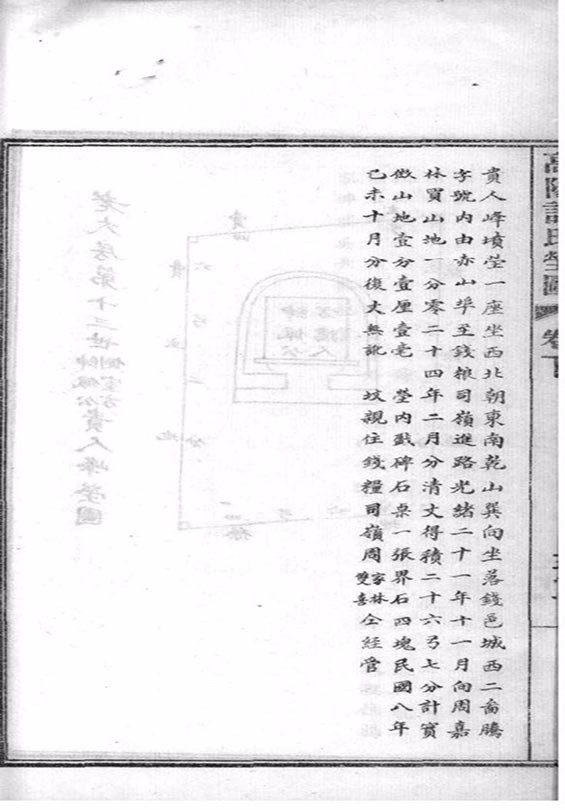 高陽許氏塋圖 卷下
貴人峰墳塋一座坐西北朝東南乾山巽向坐落錢邑城西二啚騰
字號内由赤山埠至錢粮司嶺進路光緒二十一年十一月向周嘉
林買山地一分零二十四年二月分清丈得積二十六弓七分計實
徵山地壹分壹厘壹毫 塋内戤碑石桌一張界石四塊民國八年
己未十月分復丈無訛 坟親住錢糧司嶺周家林雙喜仝經管